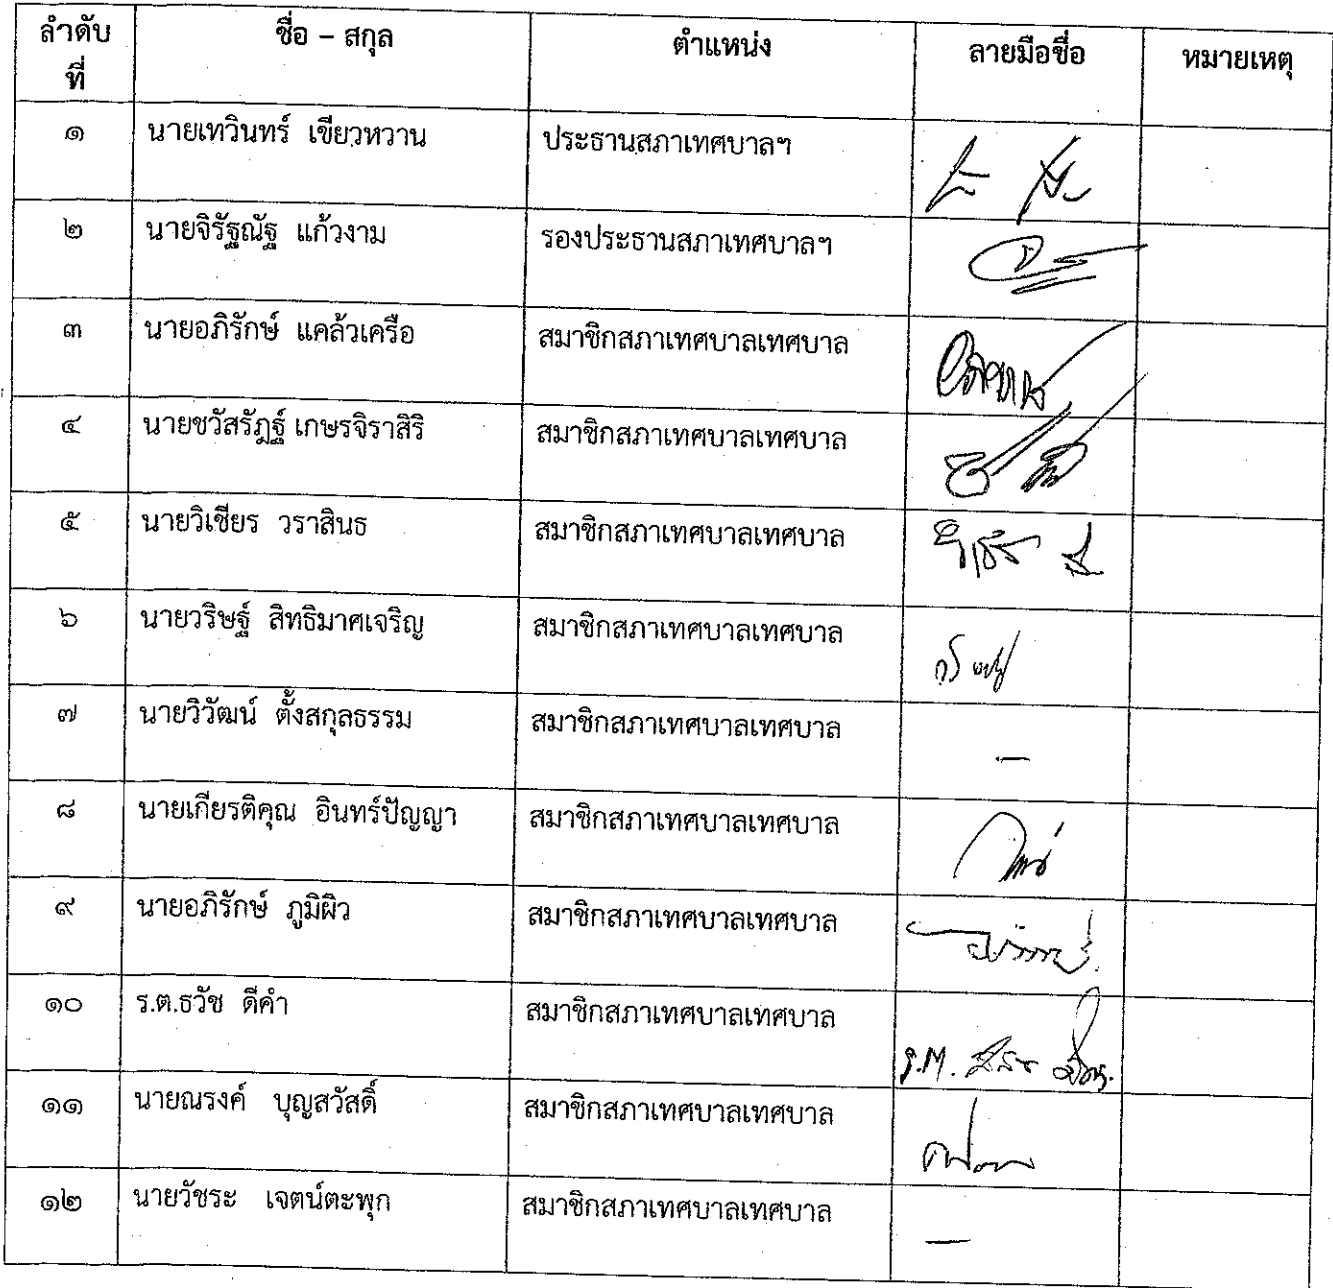 ลำดับที่ ชื่อ – สกุล ตำแหน่ง ลายมือชื่อ หมายเหตุ
๑ นายเทวินทร์ เขียวหวาน ประธานสภาเทศบาลฯ
๒ นายจิรัฐณัฐ แก้วงาม รองประธานสภาเทศบาลฯ
๓ นายอภิรักษ์ แคล้วเครือ สมาชิกสภาเทศบาลเทศบาล
๔ นายชวัสรัฎฐ์ เกษรจิราสิริ สมาชิกสภาเทศบาลเทศบาล
๕ นายวิเชียร วราสินธ สมาชิกสภาเทศบาลเทศบาล
๖ นายวริษฐ์ สิทธิมาศเจริญ สมาชิกสภาเทศบาลเทศบาล
๗ นายวิวัฒน์ ตั้งสกุลธรรม สมาชิกสภาเทศบาลเทศบาล –
๘ นายเกียรติคุณ อินทร์ปัญญา สมาชิกสภาเทศบาลเทศบาล
๙ นายอภิรักษ์ ภูมิผิว สมาชิกสภาเทศบาลเทศบาล
๑๐ ร.ต.ธวัช ดีคำ สมาชิกสภาเทศบาลเทศบาล
๑๑ นายณรงค์ บุญสวัสดิ์ สมาชิกสภาเทศบาลเทศบาล
๑๒ นายวัชระ เจตน์ตะพุก สมาชิกสภาเทศบาลเทศบาล –